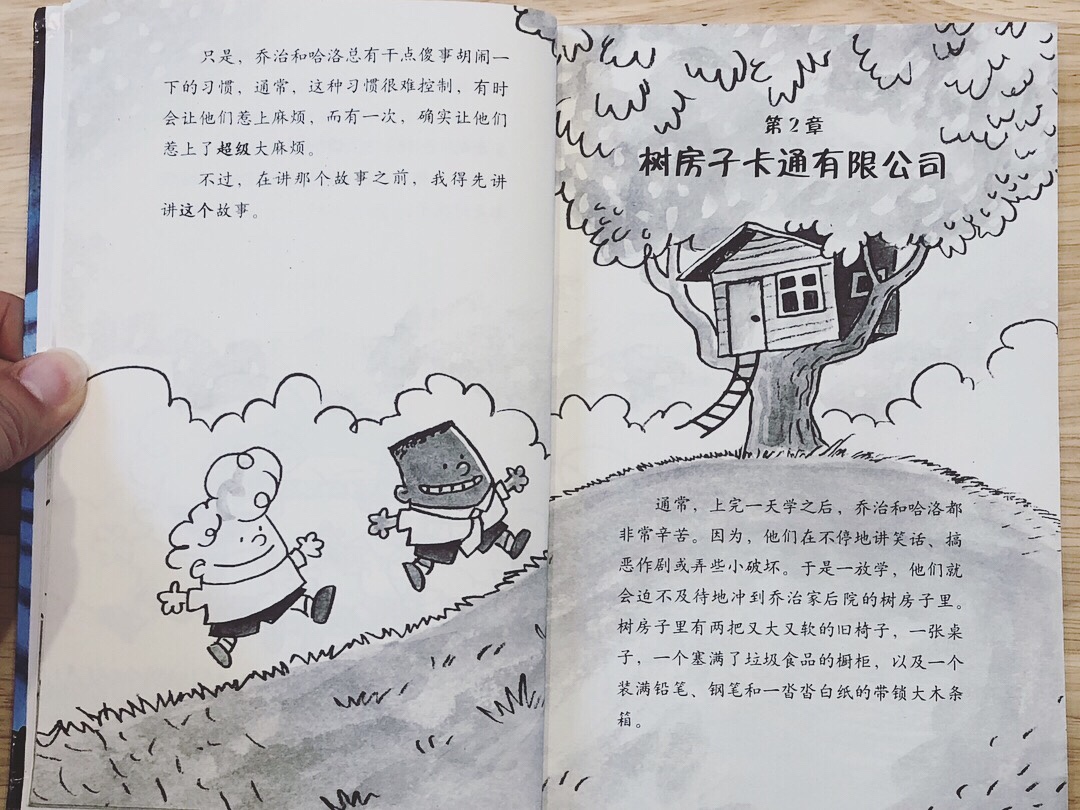 只是，乔治和哈洛总有干点傻事胡闹一
下的习惯，通常，这种习惯很难控制，有时
会让他们惹上麻烦，而有一次，确实让他们
惹上了超级大麻烦。
不过，在讲那个故事之前，我得先讲
讲这个故事。
第2章
树房子卡通有限公司
通常，上完一天学之后，乔治和哈洛都
非常辛苦。因为，他们在不停地讲笑话、搞
恶作剧或弄些小破坏。于是一放学，他们就
会迫不及待地冲到乔治家后院的树房子里。
树房子里有两把又大又软的旧椅子，一张桌
子，一个塞满了垃圾食品的橱柜，以及一个
装满铅笔、钢笔和一沓沓白纸的带锁大木条
箱。